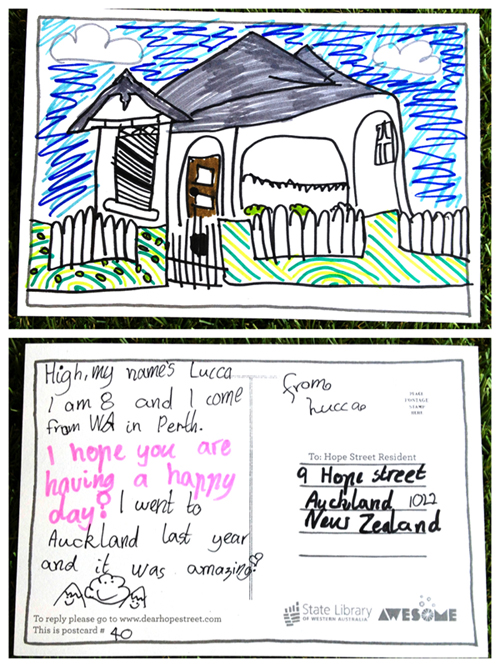 High, my name's Lucca
I am 8 and I come
from WA in Perth.
I hope you are
having a happy
day! I went to
Auckland last year
and it was amazing!
To reply please go to www.dearhopestreet.com
This is postcard # 40
from
Lucca
PLACE
POSTAGE
STAMP
HERE
To: Hope Street Resident
9 Hope street
Auckland 1022
New Zealand
State Library
OF WESTERN AUSTRALIA
AWESOME